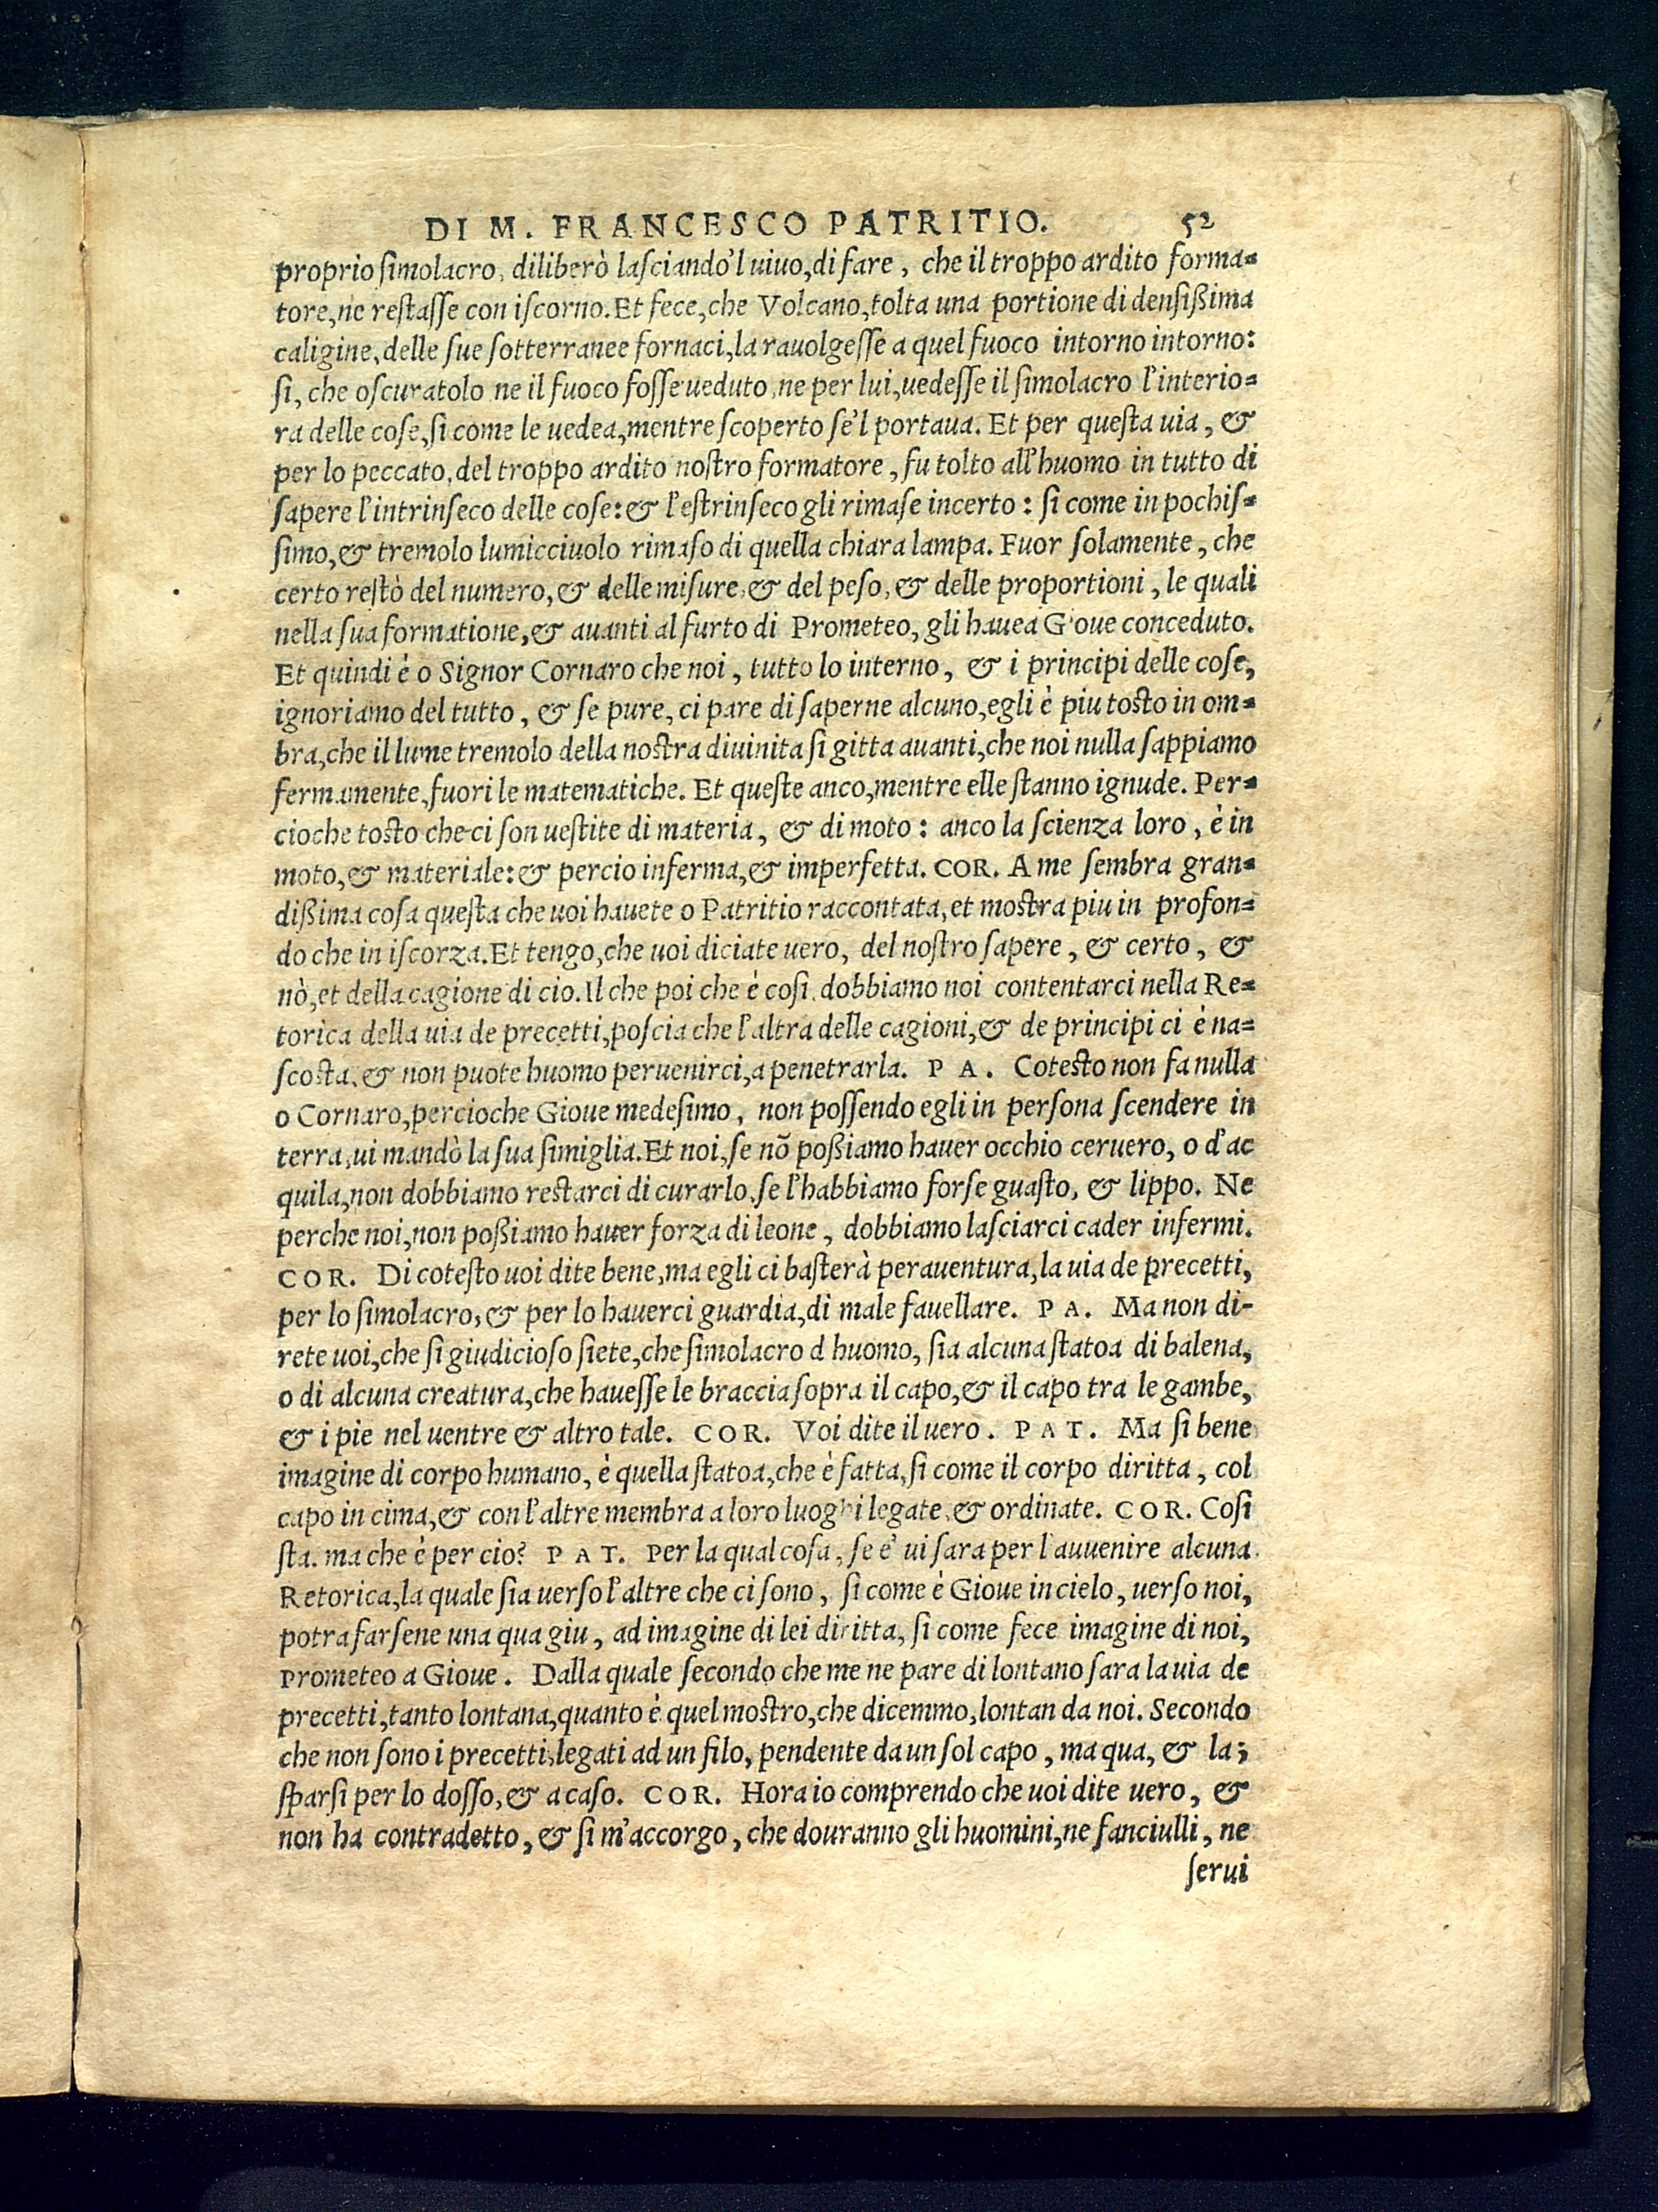 DI M. FRANCESCO PATRITIO. 52
proprio ſimolacro, diliberò laſciando'l uiuo, di fare, che il troppo ardito forma-
tore, ne reſtaſſe con iſcorno. Et fece, che Volcano, tolta una portione di denſißima
caligine, delle ſue ſotterranee fornaci, la rauolgeſſe a quel fuoco intorno intorno:
ſi, che oſcuratolo ne il fuoco foſſe ueduto, ne per lui, uedeſſe il ſimolacro l'interio-
ra delle coſe, ſi come le uedea, mentre ſcoperto ſe'l portaua. Et per queſta uia, &
per lo peccato, del troppo ardito noſtro formatore, fu tolto all'huomo in tutto di
ſapere l'intrinſeco delle coſe: & l'eſtrinſeco gli rimaſe incerto: ſi come in pochiſ-
ſimo, & tremolo lumicciuolo rimaſo di quella chiara lampa. Fuor ſolamente, che
certo reſtò del numero, & delle miſure, & del peſo, & delle proportioni, le quali
nella ſua formatione, & auanti al furto di Prometeo, gli hauea Gioue conceduto.
Et quindi è o Signor Cornaro che noi, tutto lo interno, & i principi delle coſe,
ignoriamo del tutto, & ſe pure, ci pare di ſaperne alcuno, egli è piu toſto in om-
bra, che il lume tremolo della noſtra diuinita ſi gitta auanti, che noi nulla ſappiamo
fermamente, fuori le matematiche. Et queſte anco, mentre elle ſtanno ignude. Per-
cioche toſto che ci ſon ueſtite di materia, & di moto: anco la ſcienza loro, è in
moto, & materiale: & percio inferma, & imperfetta. COR. A me ſembra gran-
dißima coſa queſta che uoi hauete o Patritio raccontata, et moſtra piu in profon-
do che in iſcorza. Et tengo, che uoi diciate uero, del noſtro ſapere, & certo, &
nò, et della cagione di cio. Il che poi che è coſi, dobbiamo noi contentarci nella Re-
torica della uia de precetti, poſcia che l'altra delle cagioni, & de principi ci è na-
ſcoſta, & non puote huomo peruenirci, a penetrarla. P A. Coteſto non fa nulla
o Cornaro, percioche Gioue medeſimo, non poſſendo egli in perſona ſcendere in
terra, ui mandò la ſua ſimiglia. Et noi, ſe nõ poßiamo hauer occhio ceruero, o d'ac
quila, non dobbiamo reſtarci di curarlo, ſe l'habbiamo forſe guaſto, & lippo. Ne
perche noi, non poßiamo hauer forza di leone, dobbiamo laſciarci cader infermi.
COR. Di coteſto uoi dite bene, ma egli ci baſterà perauentura, la uia de precetti,
per lo ſimolacro, & per lo hauerci guardia, di male fauellare. P A. Ma non di-
rete uoi, che ſi giudicioſo ſiete, che ſimolacro d huomo, ſia alcuna ſtatoa di balena,
o di alcuna creatura, che haueſſe le braccia ſopra il capo, & il capo tra le gambe,
& i pie nel uentre & altro tale. COR. Voi dite il uero. P A T. Ma ſi bene
imagine di corpo humano, è quella ſtatoa, che è fatta, ſi come il corpo diritta, col
capo in cima, & con l'altre membra a loro luoghi legate, & ordinate. COR. Coſi
ſta. ma che è per cio? P A T. Per la qual coſa, ſe e' ui ſara per l'auuenire alcuna
Retorica, la quale ſia uerſo l'altre che ci ſono, ſi come è Gioue in cielo, uerſo noi,
potra farſene una qua giu, ad imagine di lei diritta, ſi come fece imagine di noi,
Prometeo a Gioue. Dalla quale ſecondo che me ne pare di lontano ſara la uia de
precetti, tanto lontana, quanto è quel moſtro, che dicemmo, lontan da noi. Secondo
che non ſono i precetti, legati ad un filo, pendente da un ſol capo, ma qua, & la;
ſparſi per lo doſſo, & a caſo. COR. Hora io comprendo che uoi dite uero, &
non ha contradetto, & ſi m'accorgo, che douranno gli huomini, ne fanciulli, ne
ſerui